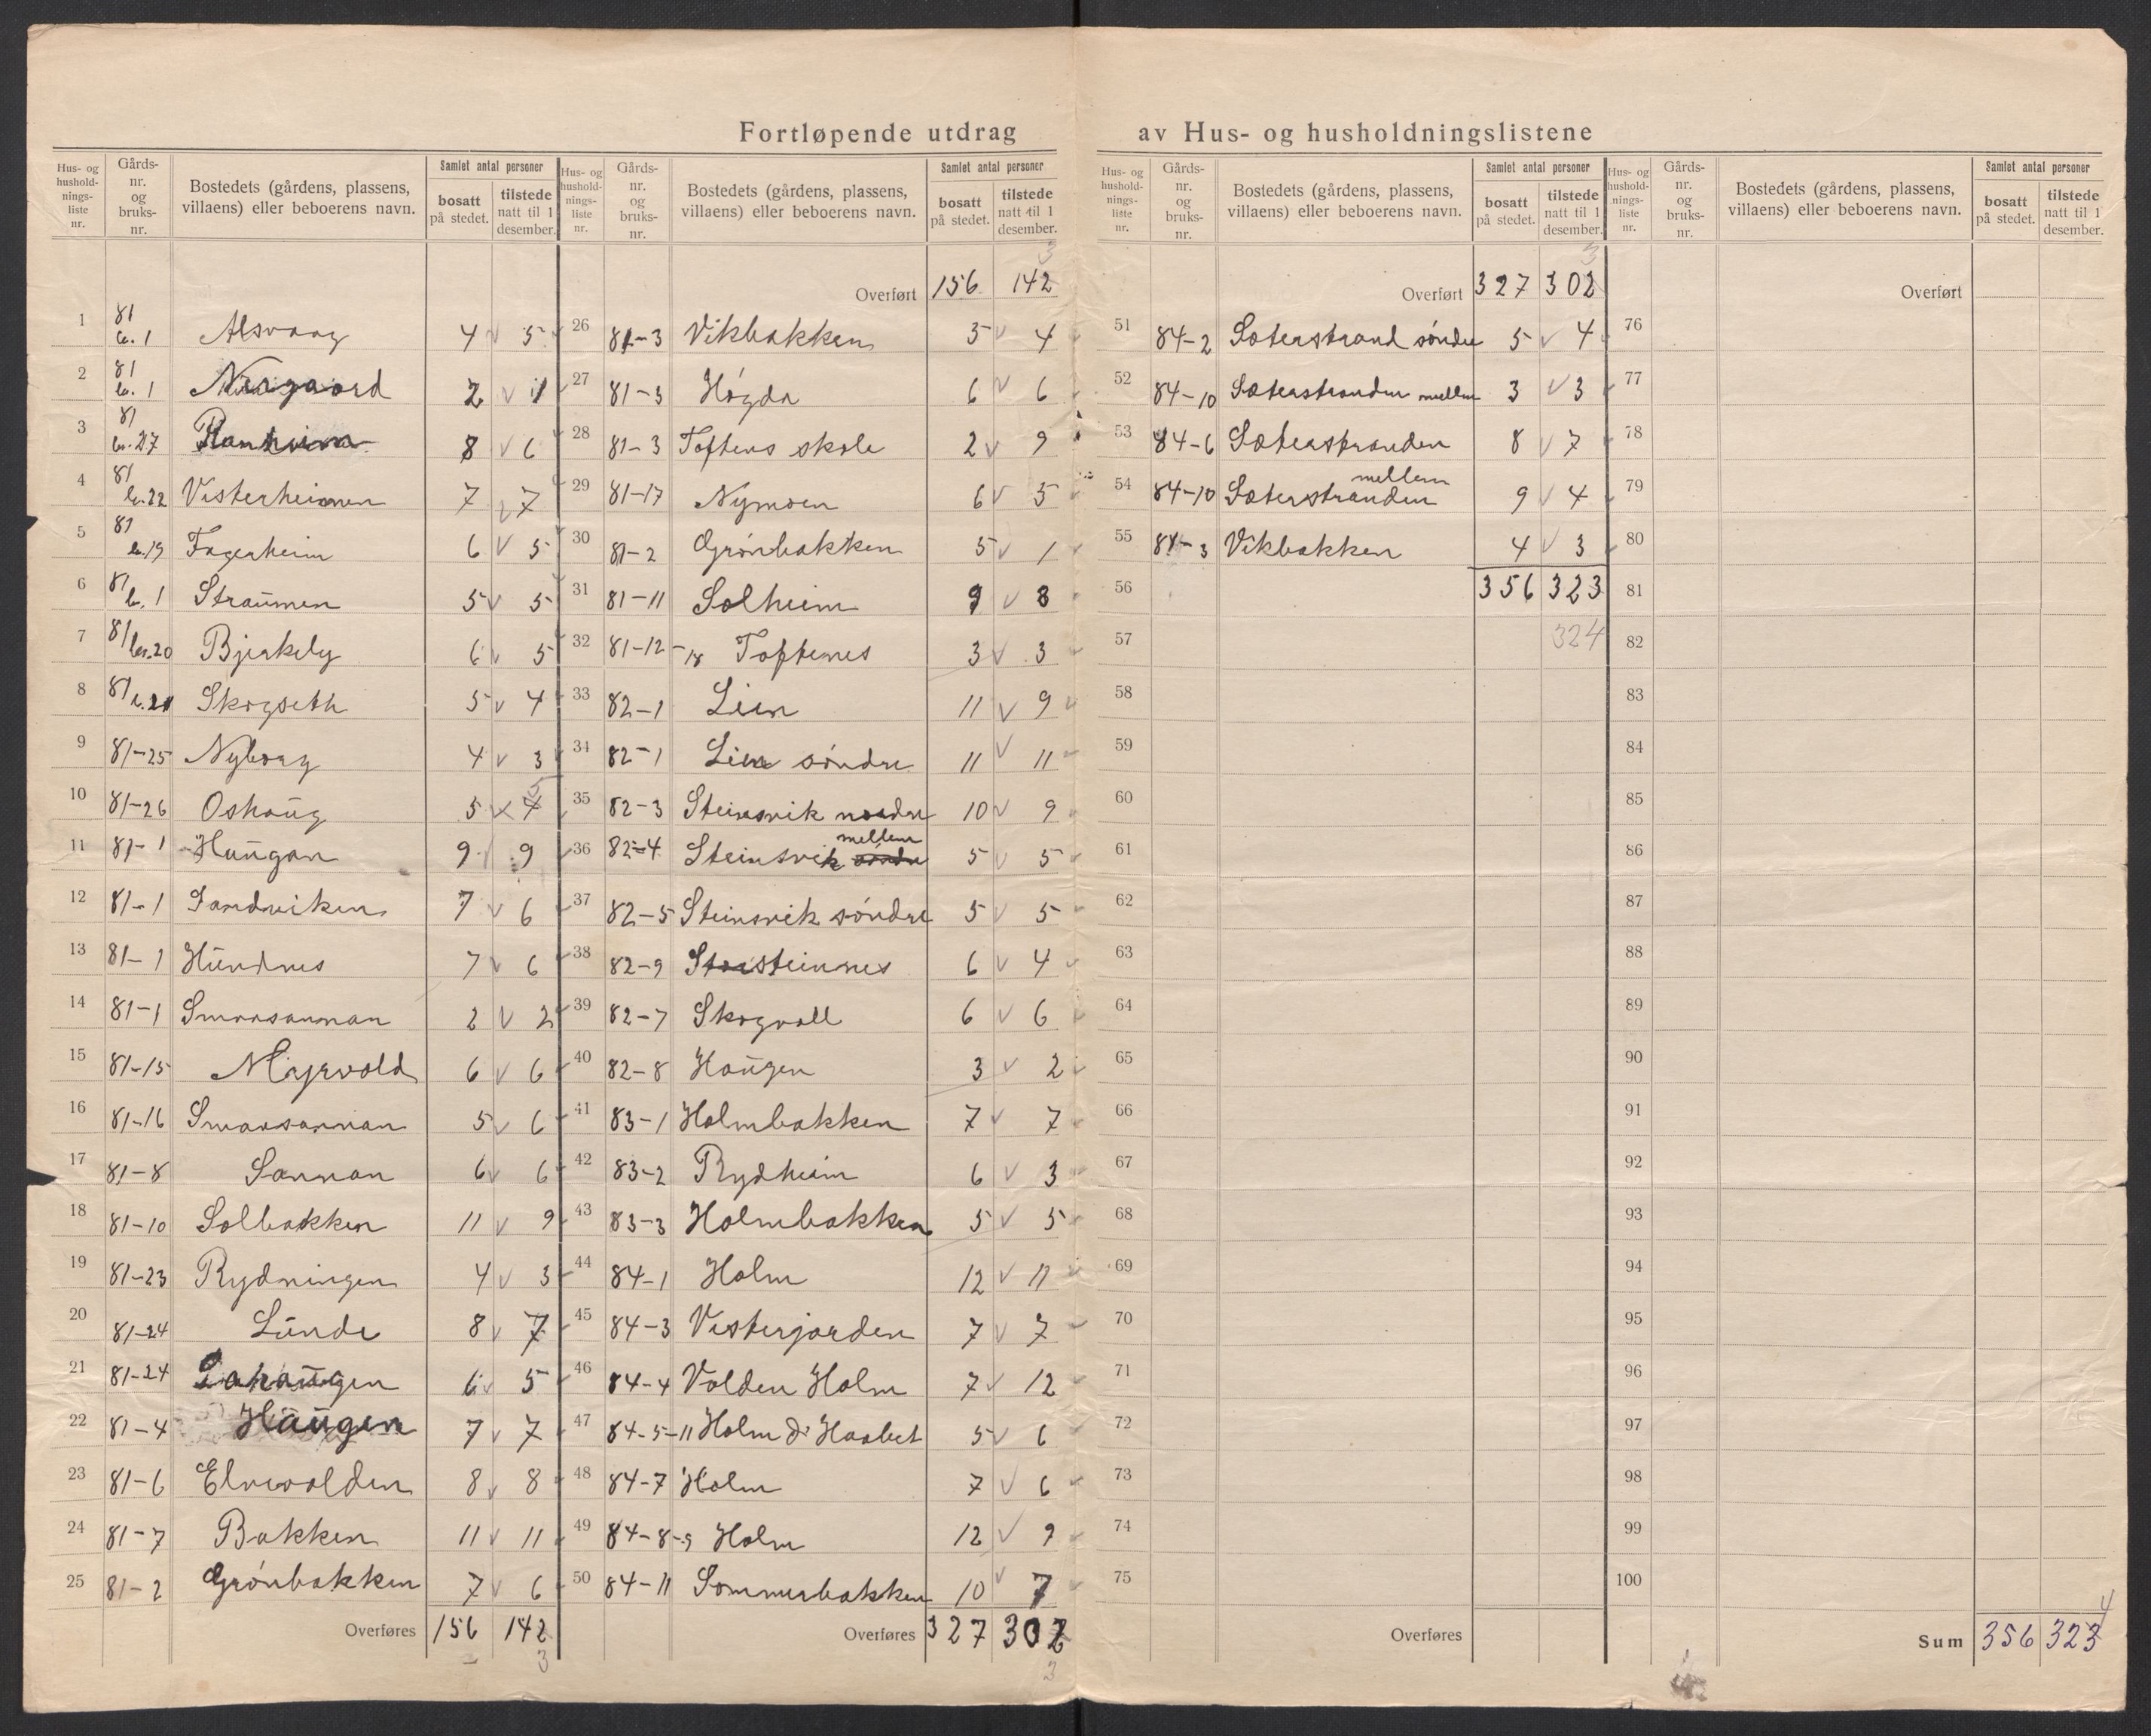 Fortløpende utdrag av Hus- og husholdningslistene
Hus- og husholdningsliste nr. Gårds- nr. og bruks- nr. Bostedets (gårdens, plassens, villaens) eller beboerens navn. Samlet antal personer bosatt på stedet. tilstede natt til 1 desember.
1 81 b. 1 Alsvaag 4 5
2 81 b. 1 Nergaard 2 1
3 81 b. 27 8 6
4 81 b. 22 Vesterheimen 7 7
5 81 b. 19 Fagerheim 6 5
6 81 b. 1 Straumen 5 5
7 81 b. 20 Bjerkely 6 5
8 81 b. 21 Skogseth 5 4
9 81-25 Nyborg 4 3
10 81-26 Oshaug 5 4 5
11 81-1 Haugan 9 9
12 81-1 Sandviken 7 6
13 81-1 Hundnes 7 6
14 81-1 Smaasannan 2 2
15 81-15 Myrvold 6 6
16 81-16 Smaasannan 5 6
17 81-8 Sannan 6 6
18 81-10 Solbakken 11 9
19 81-23 Rydningen 4 3
20 81-24 Lunde 8 7
21 81-24 6 5
22 81-4 Haugen 7 7
23 81-6 Elvevolden 8 8
24 81-7 Bakken 11 11
25 81-2 Grönbakken 7 6
Overføres 156 142
3
Hus- og husholdningsliste nr. Gårds- nr. og bruks- nr. Bostedets (gårdens, plassens, villaens) eller beboerens navn. Samlet antal personer bosatt på stedet. tilstede natt til 1 desember.
3
Overført 156 142
26 81-3 Vikbakken 5 4
27 81-3 Högda 6 6
28 81-3 Toftenes skole 2 9
29 81-17 Nymoen 6 5
30 81-2 Grönbakken 5 1
31 81-11 Solheim 9 8
32 81-12-18 Toftenes 3 3
33 82-1 Lien 11 9
34 82-1 Lien söndre 11 11
35 82-3 Steinsvik nordre 10 9
36 82-4 Steinsvik söndre mellem 5 5
37 82-5 Steinsvik söndre 5 5
38 82-9 Storsteinnes 6 4
39 82-7 Skogvoll 6 6
40 82-8 Haugen 3 2
41 83-1 Holmbakken 7 7
42 83-2 Rydheim 6 3
43 83-3 Holmbakken 5 5
44 84-1 Holm 12 11
45 84-3 Vesterjorden 7 7
46 84-4 Volden Holm 7 12
47 84-5-11 Holm & Haabet 5 6
48 84-7 Holm 7 6
49 84-8-9 Holm 12 9
50 84-11 Sommerbakken 10 7
Overføres 327 302
3
Hus- og husholdningsliste nr. Gårds- nr. og bruks- nr. Bostedets (gårdens, plassens, villaens) eller beboerens navn. Samlet antal personer bosatt på stedet. tilstede natt til 1 desember.
3
Overført 327 302
51 84-2 Sæterstrand söndre 5 4
52 84-10 Sæterstranden mellem 3 3
53 84-6 Sæterstranden 8 7
54 84-10 Sæterstranden mellem 9 4
55 81-3 Vikbakken 4 3
56 356 323
57 324
58
59
60
61
62
63
64
65
66
67
68
69
70
71
72
73
74
75
Overføres
Hus- og husholdningsliste nr. Gårds- nr. og bruks- nr. Bostedets (gårdens, plassens, villaens) eller beboerens navn. Samlet antal personer bosatt på stedet. tilstede natt til 1 desember.
Overført
76
77
78
79
80
81
82
83
84
85
86
87
88
89
90
91
92
93
94
95
96
97
98
99
100
4
Sum 356 323